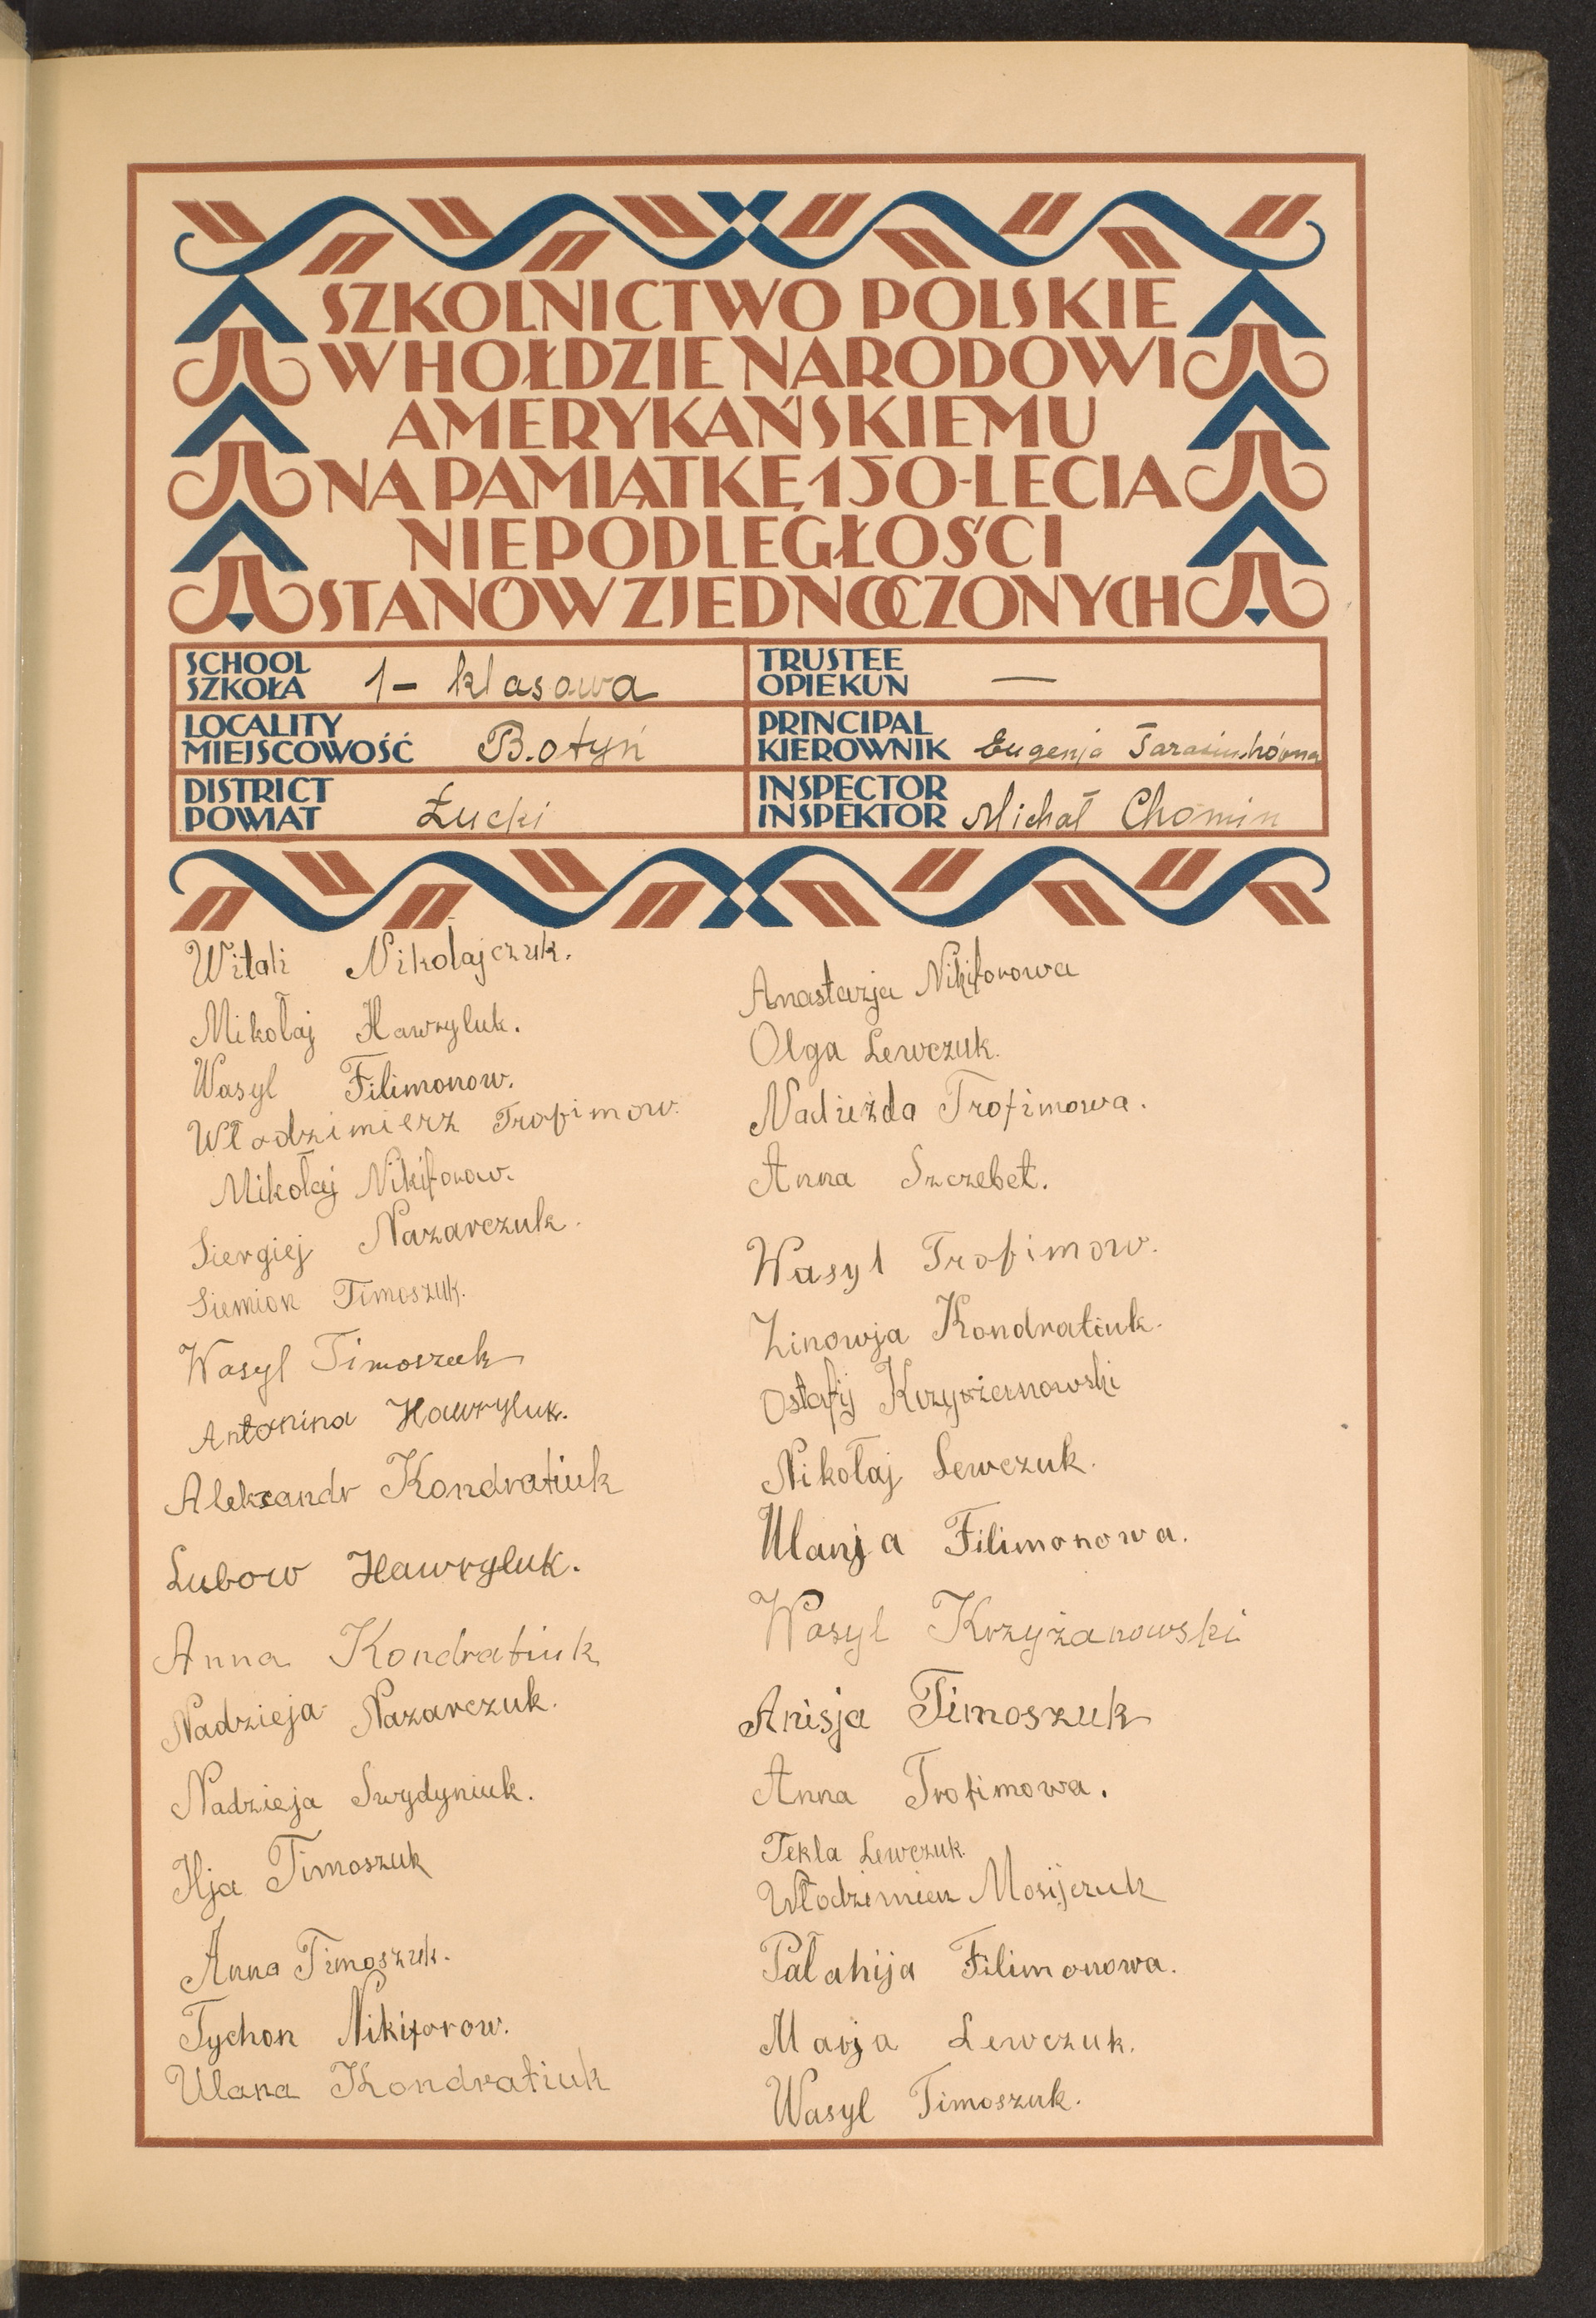 SZKOLNICTWO POLSKIE
W HOŁDZIE NARODOWI
AMERYKAŃSKIEMU
NA PAMIĄTKĘ 150-LECIA
NIEPODLEGŁOŚCI
STANÓW ZJEDNOCZONYCH
SCHOOL
SZKOŁA 1- klasowa
TRUSTEE
OPIEKUN —
LOCALITY
MIEJSCOWOŚĆ B.otyń
PRINCIPAL
KIEROWNIK Eugenja
DISTRICT
POWIAT Łucki
INSPECTOR
INSPEKTOR Michał Chomin
Witali Nikołajczuk.
Mikołaj Hawryluk.
Wasyl Filimonow.
Włodzimierz Trofimow.
Mikołaj Nikiforow.
Siergiej Nazarczuk.
Siemion Timoszuk.
Wasyl Timoszuk
Antonina Hawryluk.
Aleksandr Kondratiuk
Lubow Hawryluk.
Anna Kondratiuk
Nadzieja Nazarczuk.
Nadzieja Swydyniuk.
Ilja Timoszuk
Anna Timoszuk.
Tychon Nikiforow.
Ulana Kondratiuk
Anastazja Nikiforowa
Olga Lewczuk.
Nadieżda Trofimowa.
Anna Szczebet.
Wasyl Trofimow.
Zinowja Kondratiuk.
Ostafij
Nikołaj Lewczuk.
Ulanja Filimonowa.
Wasyl Krzyżanowski
Anisja Timoszuk
Anna Trofimowa.
Tekla Lewczuk.
Włodzimierz Mosijczuk
Pałahija Filimonowa.
Marja Lewczuk.
Wasyl Timoszuk.